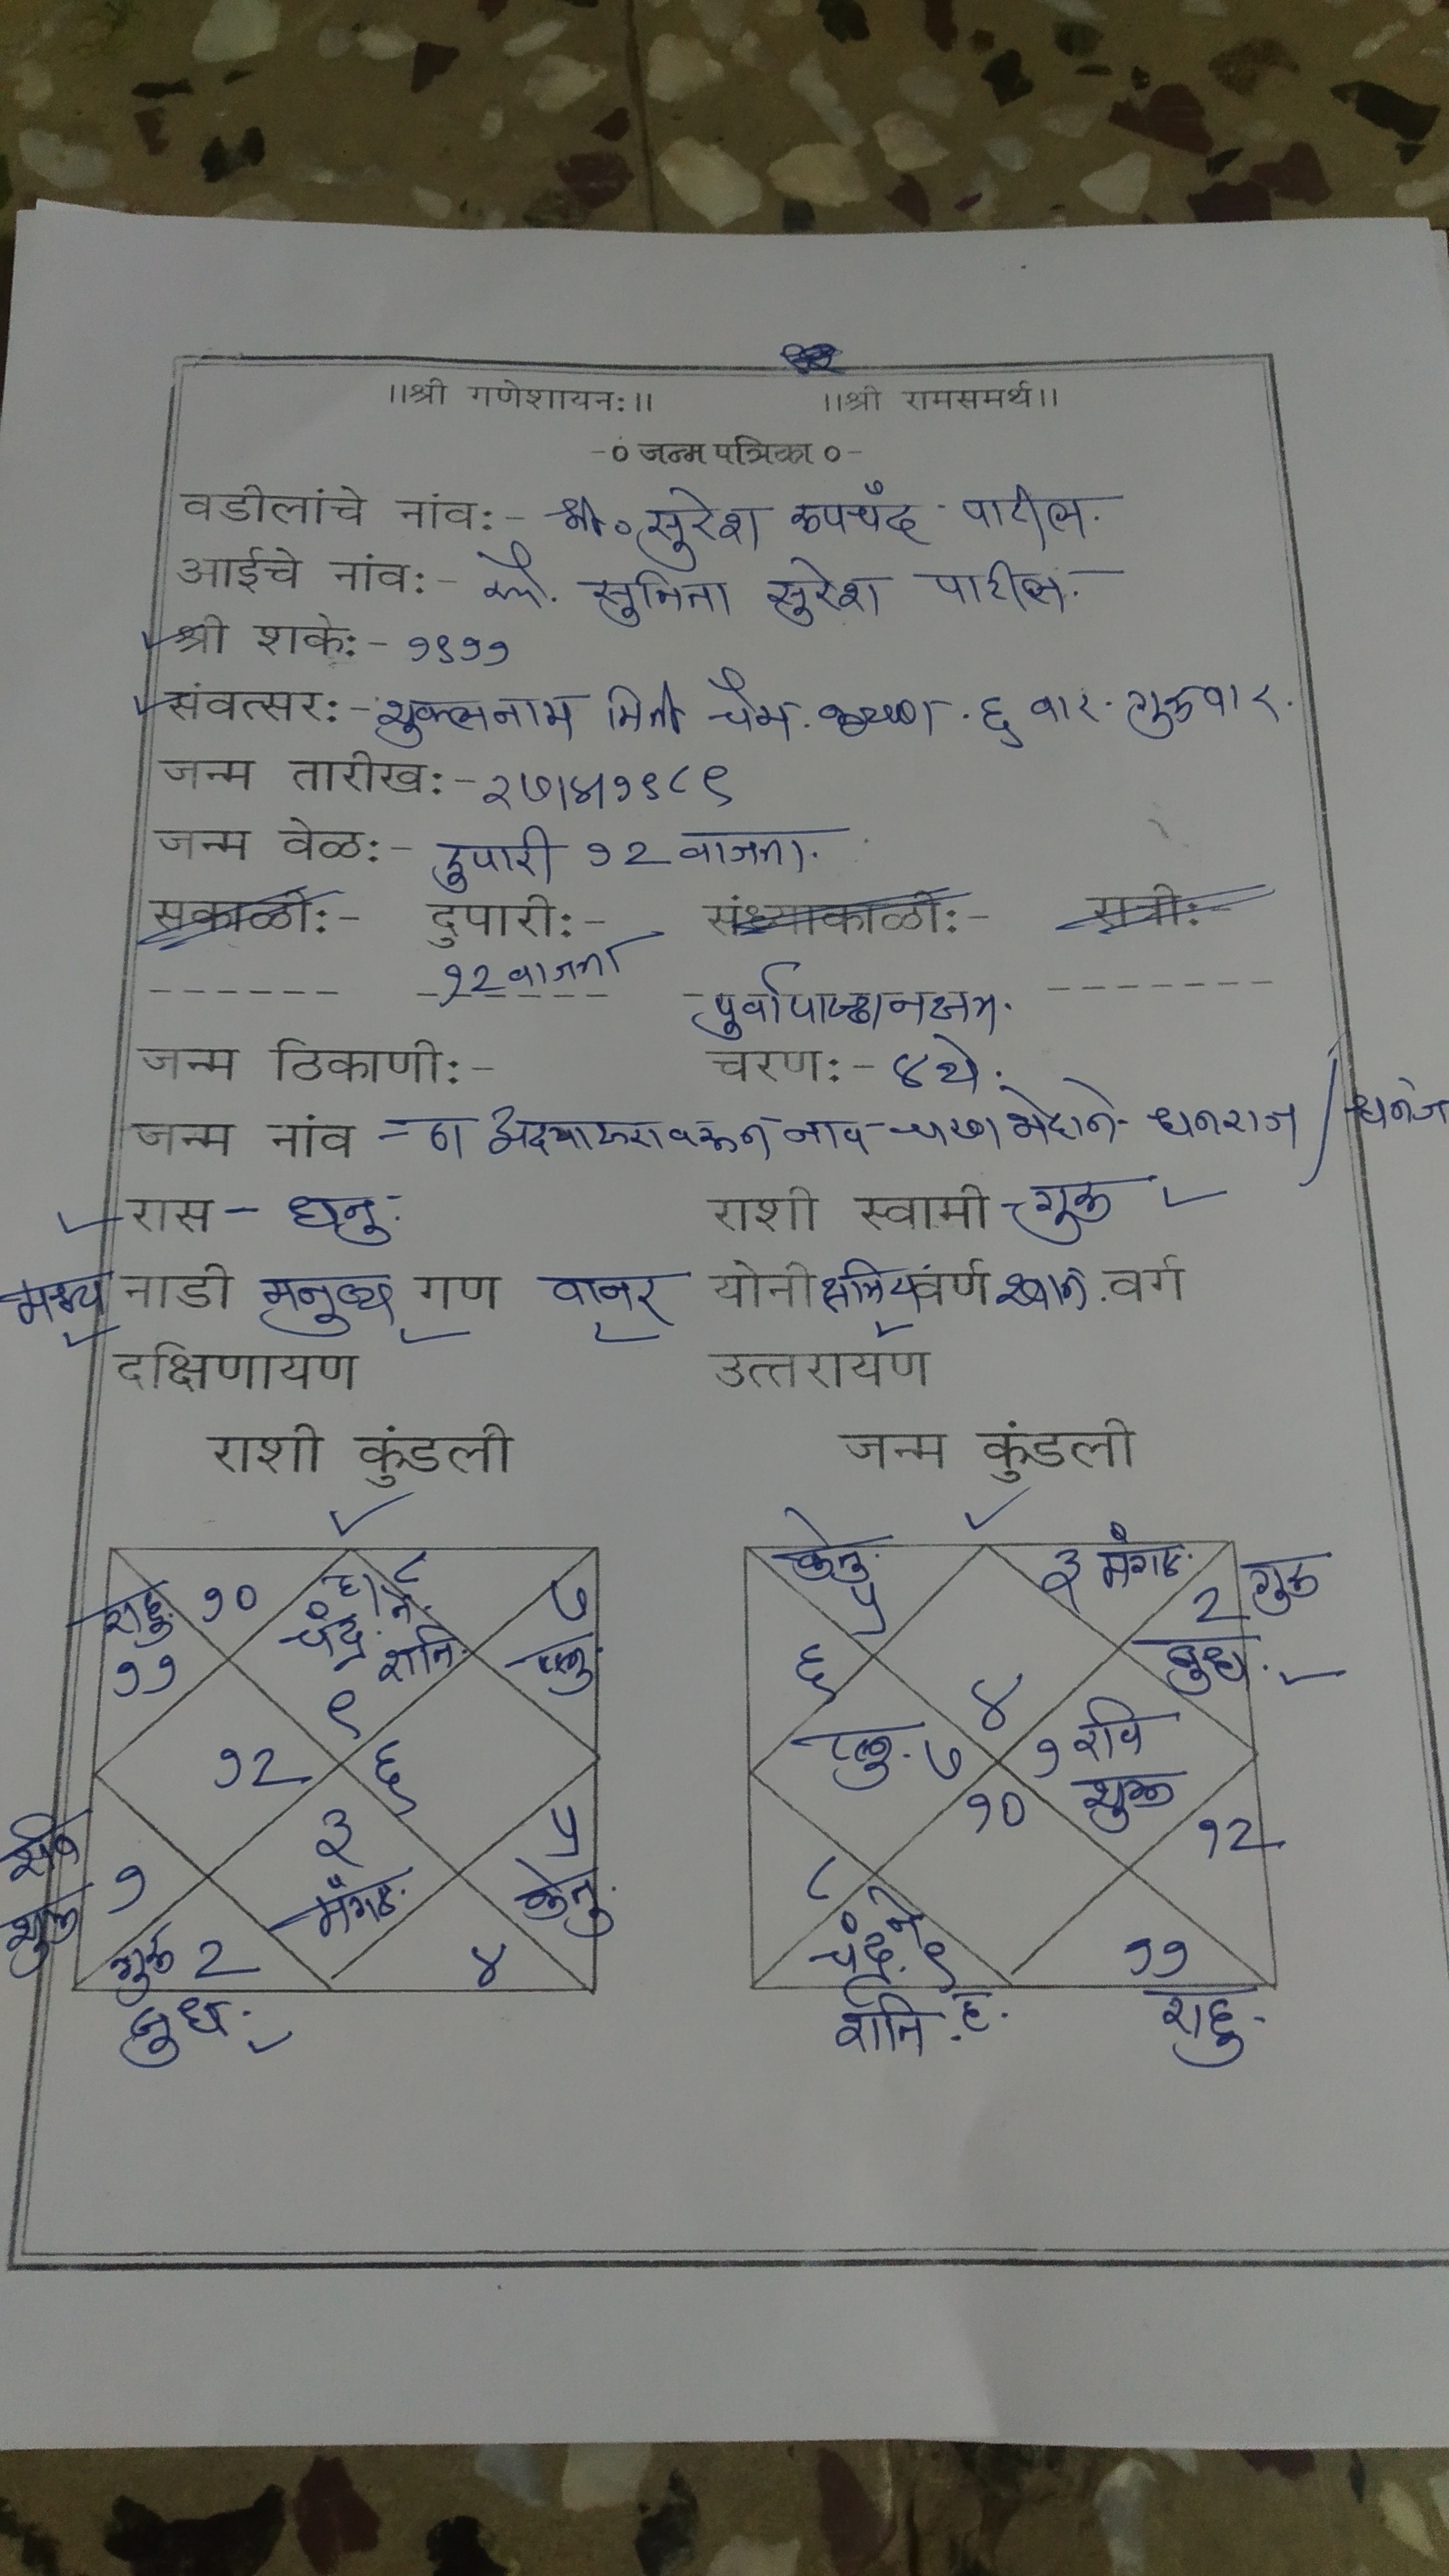 ।।श्री गणेशायनः।। ।।श्री रामसमर्थ।।
-० जन्म पत्रिका ०-
वडीलांचे नांवः- श्री० सुरेश रुपचँद पाटील.
आईचे नांवः- सौ. सुनिता सुरेश पाटील.
श्री शकेः- १९११
संवत्सरः- शुक्लनाम मिती चैत्र. कृष्ण. ६ वार. गुरुवार.
जन्म तारीखः- २७।४।१९८९
जन्म वेळः- दुपारी १२ वाजता.
सकाळीः- दुपारीः- संध्याकाळीः- रात्रीः-
१२ वाजता
पुर्वाषाढा नक्षत्र.
जन्म ठिकाणीः- चरणः- ४थे.
जन्म नांव - नाव धनराज /
रास - धनु. राशी स्वामी - गुरु
मध्य नाडी मनुष्य गण वानर योनी क्षत्रिय वर्ण श्वान. वर्ग
दक्षिणायण उत्तरायण
राशी कुंडली जन्म कुंडली
राहु. १० ह. ८ ७
चंद्र. ने. शनि. प्लु.
११ ९
१२ ६
रवि शुक्र १ ३ मंगळ. ५ केतु.
गुरु २ ४
बुध.
केतु. ५ ३ मंगळ. २ गुरु
६ बुध.
४
प्लु. ७ १ रवि शुक्र
१० १२
८ ने.
चंद्र. ९ ११
शनि. ह. राहु.